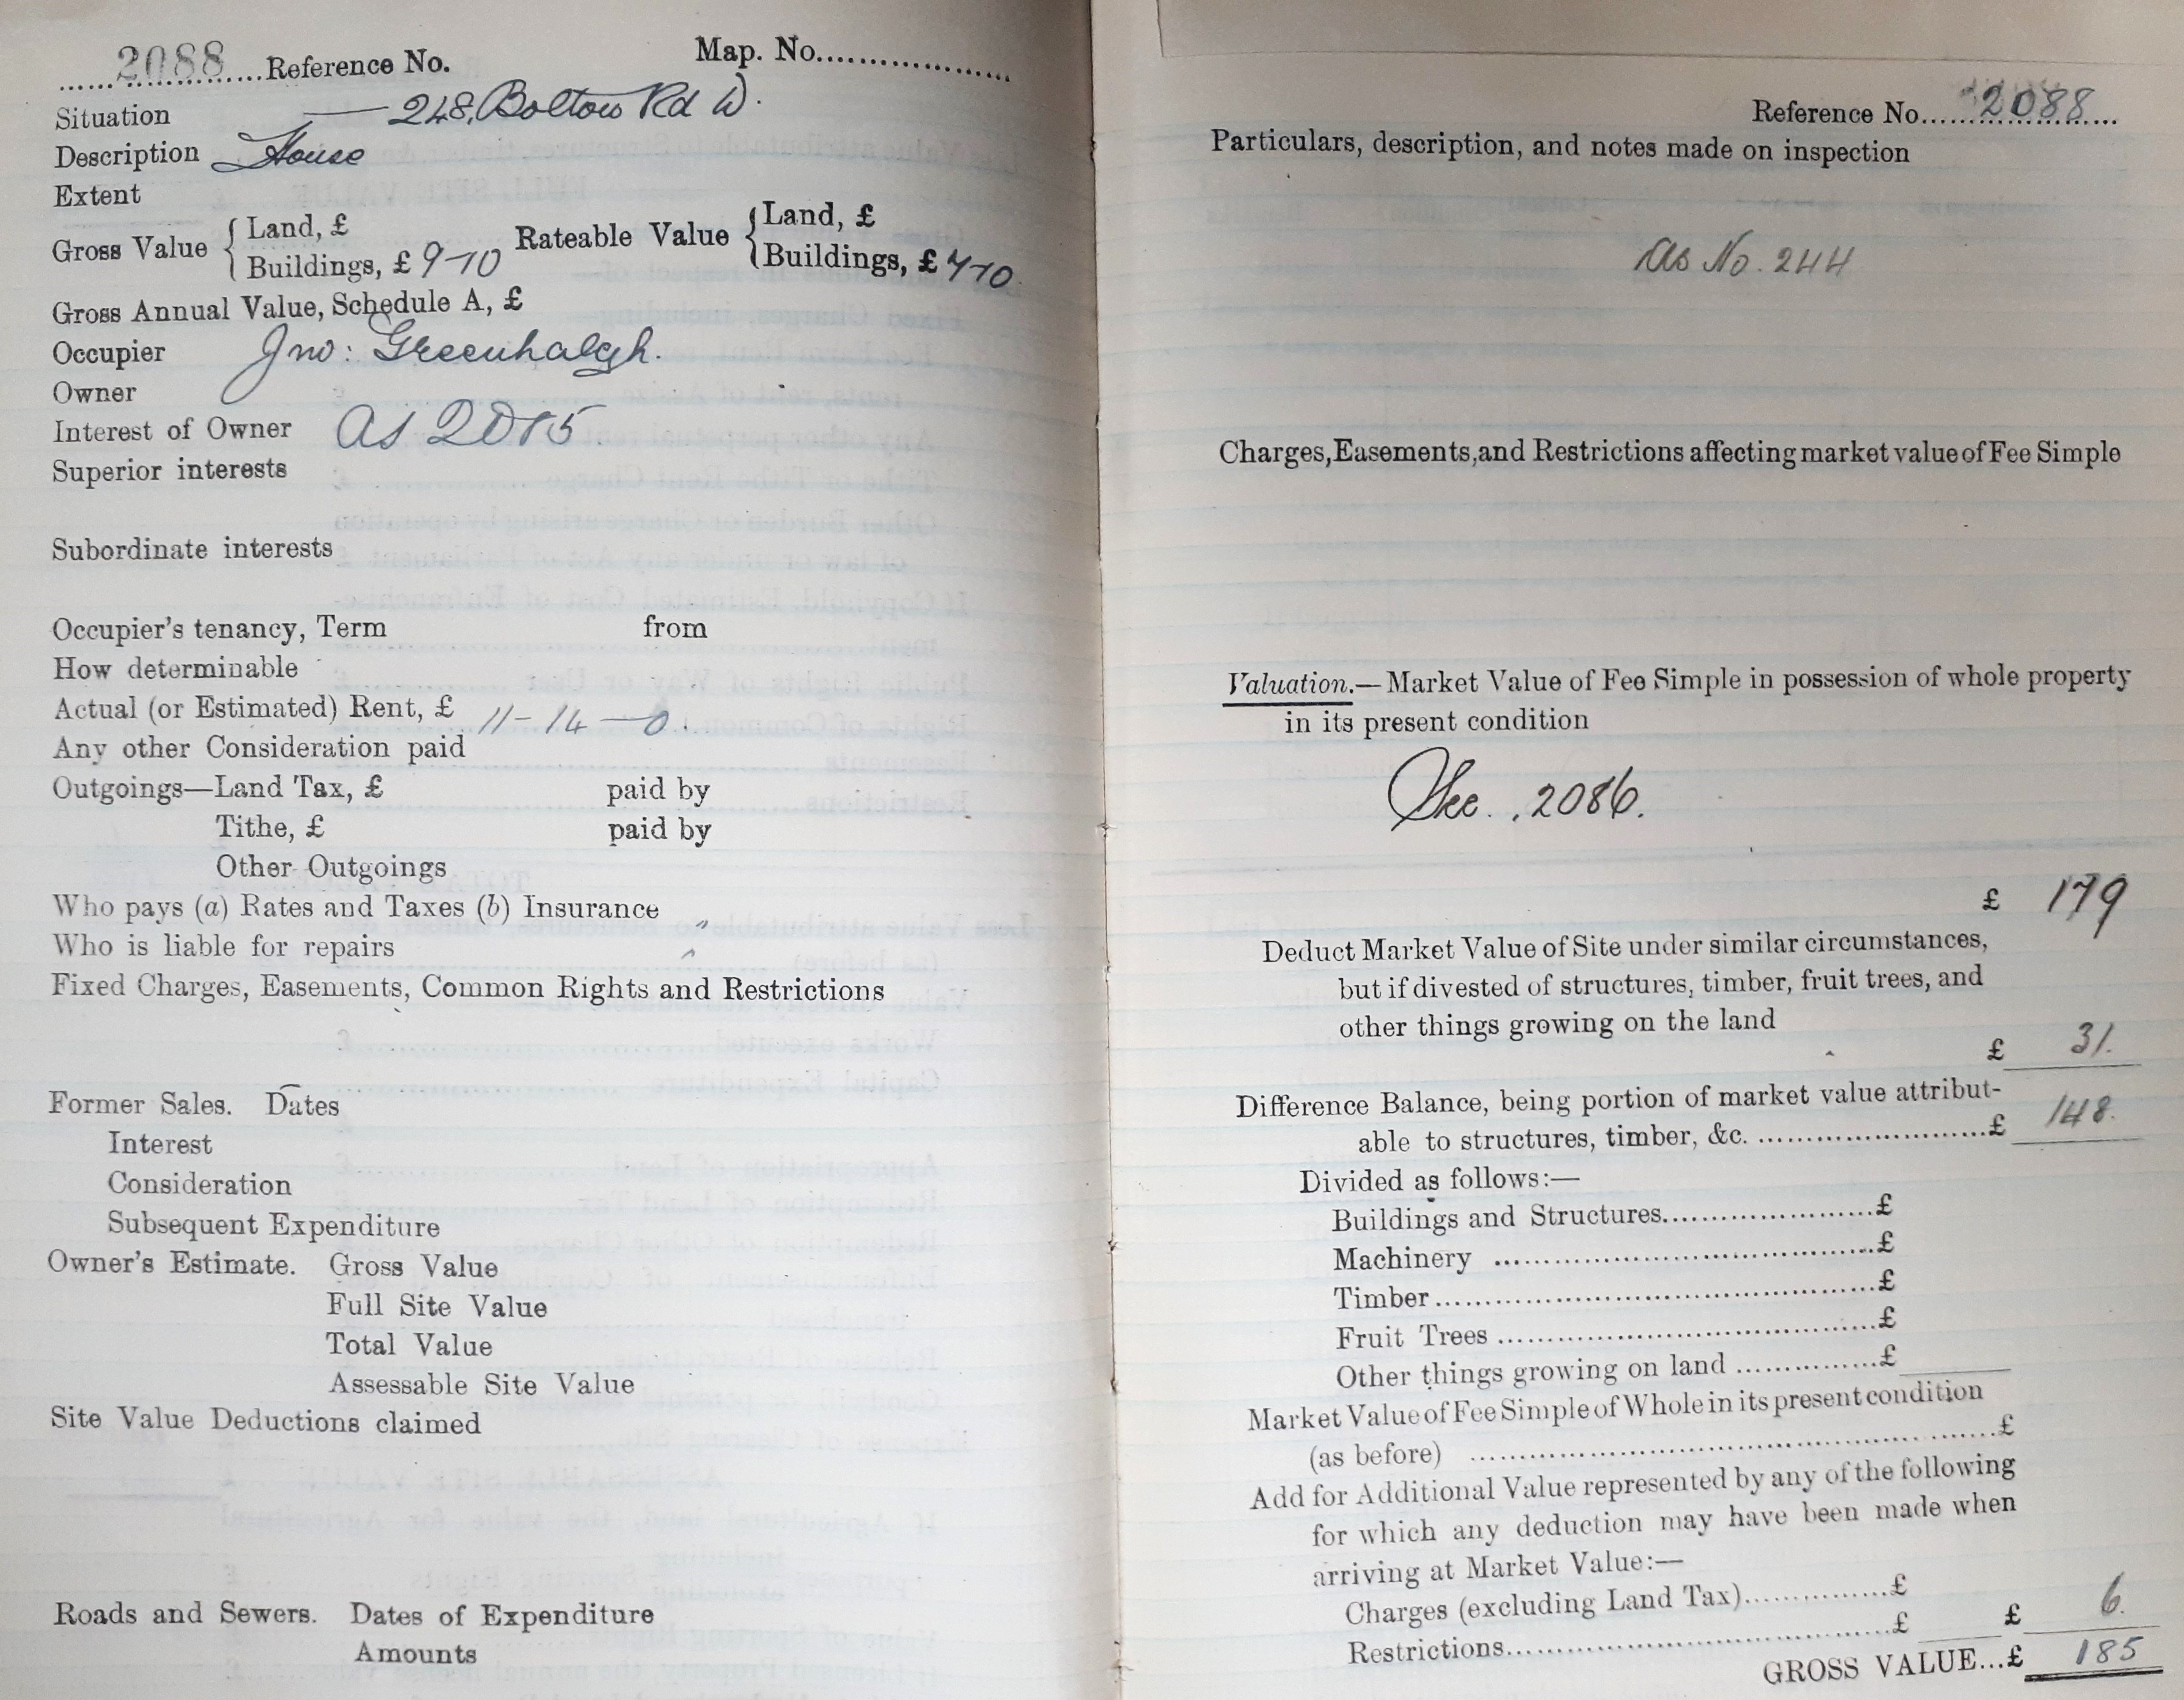 2088 Reference No. Map. No.
Situation — 248, Bolton Rd W.
Description House
Extent
Gross Value { Land, £
Buildings, £ 9-10 Rateable Value { Land, £
Buildings, £ 7-10
Gross Annual Value, Schedule A, £
Occupier Jno: Greenhalgh.
Owner
Interest of Owner as 2015
Superior interests
Subordinate interests
Occupier's tenancy, Term from
How determinable
Actual (or Estimated) Rent, £ 11-14-0.
Any other Consideration paid
Outgoings—Land Tax, £ paid by
Tithe, £ paid by
Other Outgoings
Who pays (a) Rates and Taxes (b) Insurance
Who is liable for repairs
Fixed Charges, Easements, Common Rights and Restrictions
Former Sales. Dates
Interest
Consideration
Subsequent Expenditure
Owner's Estimate. Gross Value
Full Site Value
Total Value
Assessable Site Value
Site Value Deductions claimed
Roads and Sewers. Dates of Expenditure
Amounts
Reference No. 2088
Particulars, description, and notes made on inspection
As No. 244
Charges, Easements, and Restrictions affecting market value of Fee Simple
Valuation.—Market Value of Fee Simple in possession of whole property
in its present condition
See. 2086.
£ 179
Deduct Market Value of Site under similar circumstances,
but if divested of structures, timber, fruit trees, and
other things growing on the land
£ 31.
Difference Balance, being portion of market value attribut-
able to structures, timber, &c. £ 148.
Divided as follows:—
Buildings and Structures £
Machinery £
Timber £
Fruit Trees £
Other things growing on land £
Market Value of Fee Simple of Whole in its present condition
(as before) £
Add for Additional Value represented by any of the following
for which any deduction may have been made when
arriving at Market Value:—
Charges (excluding Land Tax) £
Restrictions £ £ 6.
GROSS VALUE...£ 185